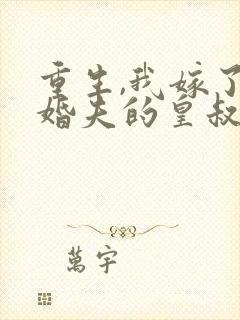 重生,我嫁了
婚夫的皇叔
萬宇